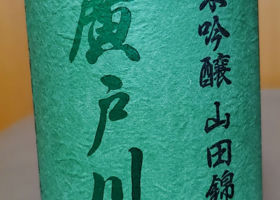 廣戸川
吟醸 山田錦